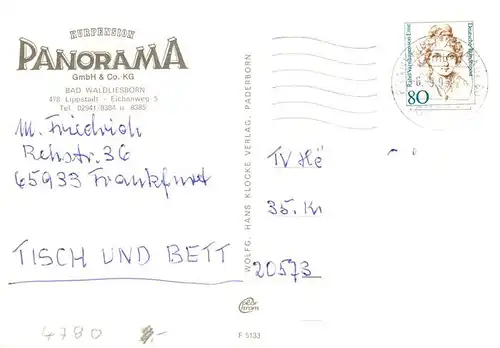 KURPENSION
PANORAMA
GmbH & Co. KG
BAD WALDLIESBORN
478 Lippstadt - Eichenweg 5
Tel. 02941/8384 u. 8385
M. Friedrich
Rehstr. 36
65933 Frankfurt
TISCH UND BETT
4780
WOLFG. HANS KLOCKE VERLAG, PADERBORN
F 5133
Deutsche Bundespost
80
TV Hé
35. Kr
20573